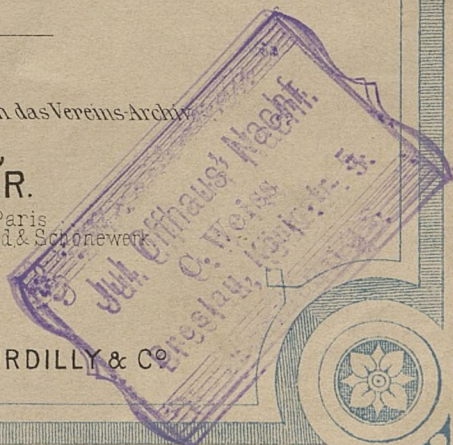 n das Vereins-Archiv
R.
Paris
d, & Schönewerk.
RDILLY & Cº
Jul. Offhaus' Nachf.
C. Weiss
Breslau, Königstr. 5.